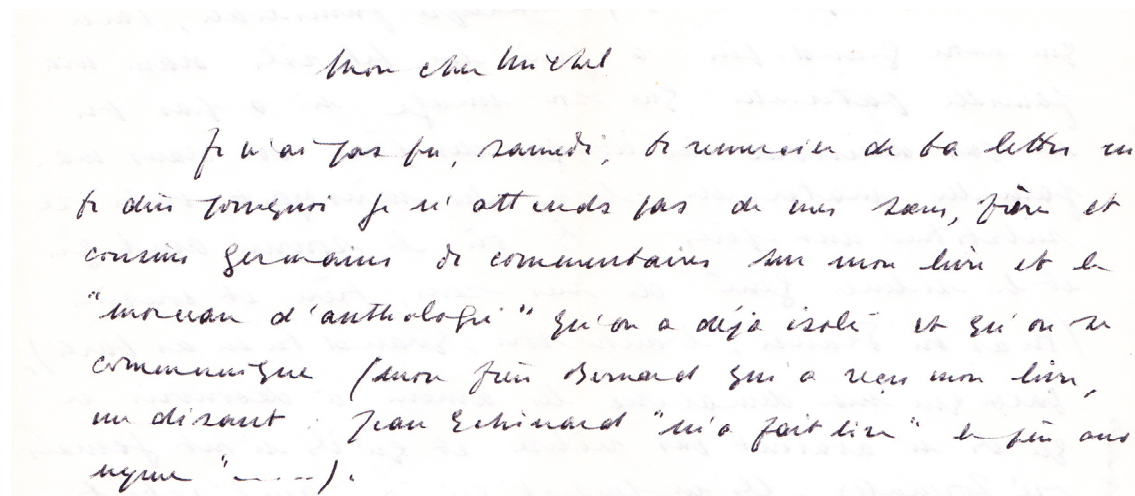 Mon cher Michel
Je n'ai pas pu, samedi, te remercier de ta lettre ni
te dire pourquoi je n'attends pas de mes sœurs, frère et
cousins germains de commentaires sur mon livre et le
"morceau d'anthologie" qu'on a déjà isolé et qu'on se
communique (mon frère Bernard qui a reçu mon livre,
me disant : Jean Echinard "m'a fait lire" le
"------").